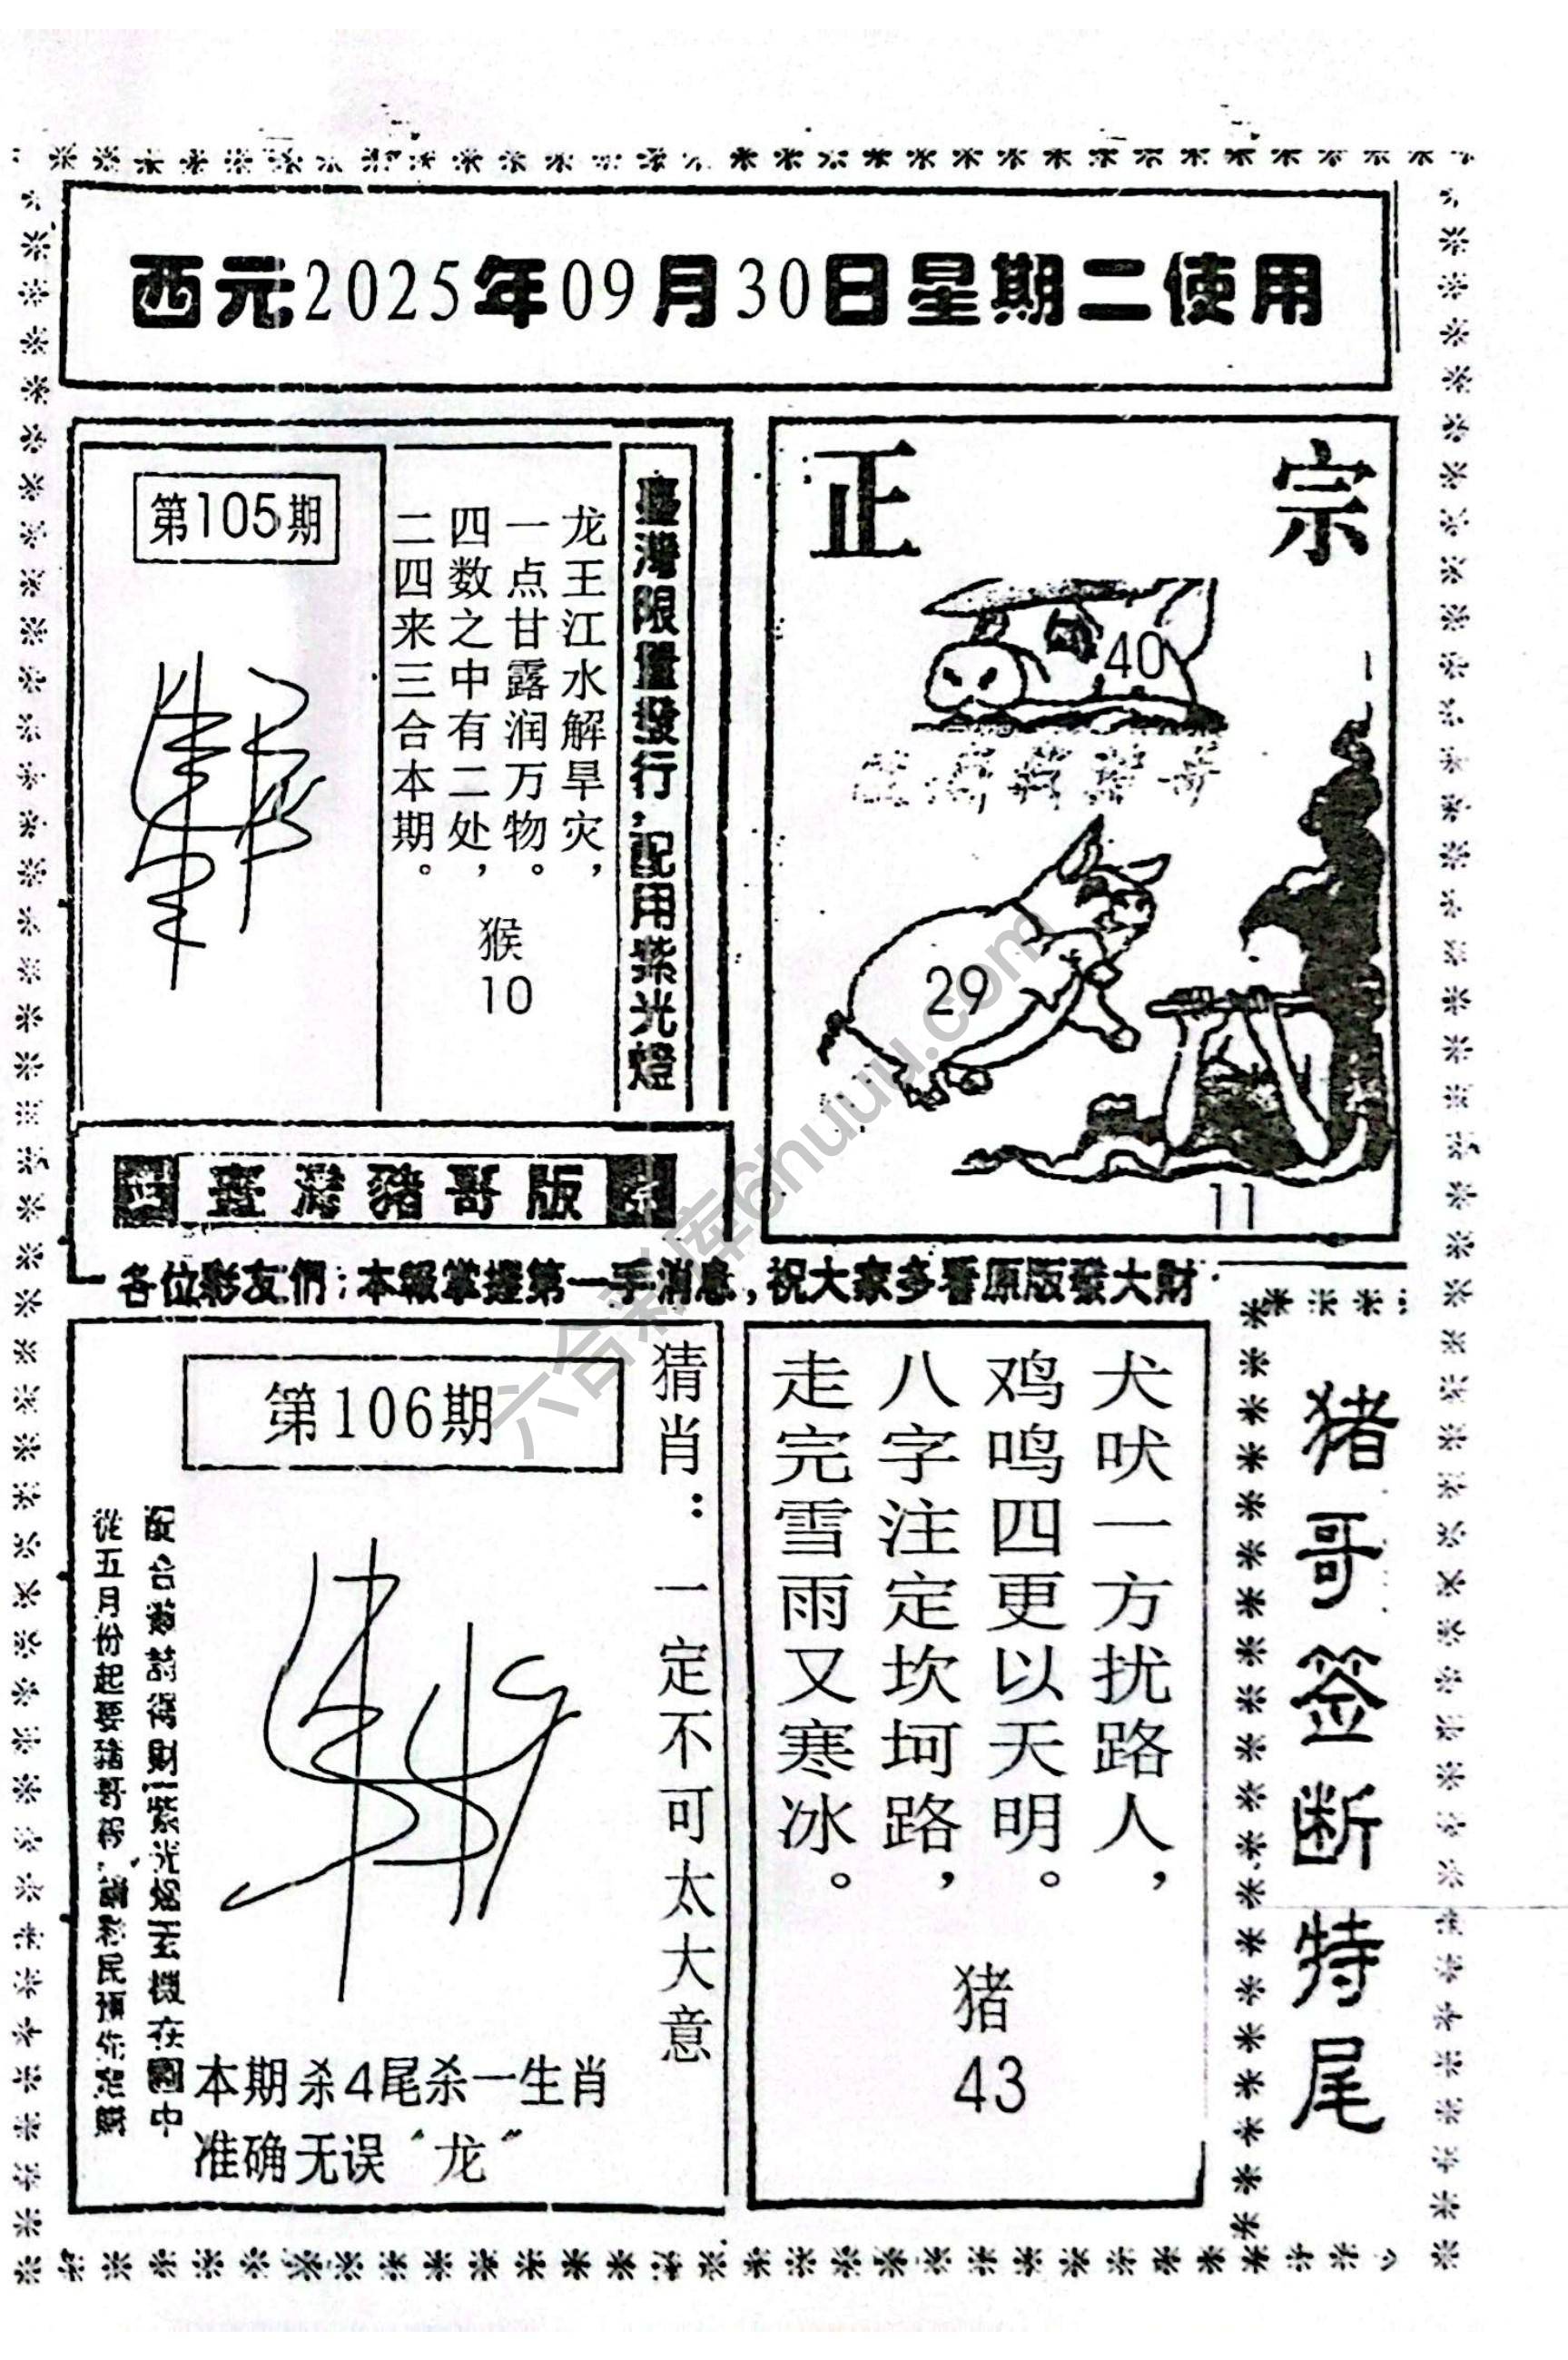 西元2025年09月30日星期二使用
第105期
臺灣限量發行,配用紫光燈
龙王江水解旱灾，
一点甘露润万物。
四数之中有二处，
二四来三合本期。
猴
10
正宗
40
29
11
臺灣豬哥版
各位彩友們:本報掌握第一手消息,祝大家多看原版發大財
第106期
猜肖：一定不可太大意
從五月份起要豬哥
财紫光
本期杀4尾杀一生肖
准确无误“龙”
犬吠一方扰路人，
鸡鸣四更以天明。
八字注定坎坷路，
走完雪雨又寒冰。
猪
43
猪哥签断特尾
六合彩库6huuu.com